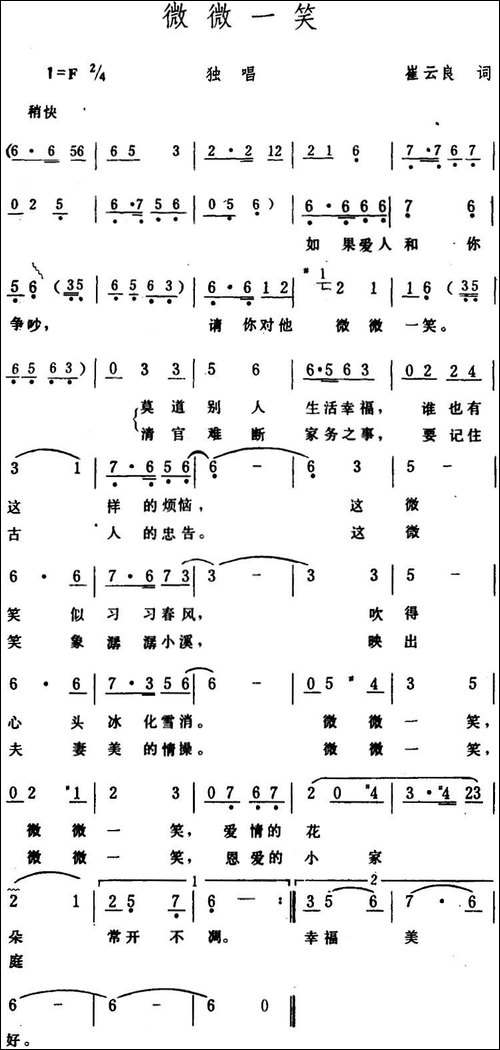 微微一笑
1=F 2/4 独唱 崔云良 词
稍快
(6·6 56 | 65 3 | 2·2 12 | 21 6 | 7·7 6 7 |
0 2 5 | 6·7 5 6 | 05 6) | 6·6 6 6 | 7 6 |
如 果爱人 和 你
5 6 (35 | 65 63) | 6·6 12 | #1 2 1 | 16 (35 |
争吵, 请 你对他 微 微 一笑。
65 63) | 0 3 3 | 5 6 | 6·5 6 3 | 02 24 |
莫 道 别 人 生活幸福, 谁也有
清 官 难 断 家务之事, 要记住
3 1 | 7·6 56 | 6 - | 6 3 | 5 - |
这 样的烦恼, 这 微
古 人的忠告。 这 微
6· 6 | 7·6 73 | 3 - | 3 3 | 5 - |
笑 似 习 习春风, 吹 得
笑 象 潺 潺小溪, 映 出
6· 6 | 7·3 56 | 6 - | 05 #4 | 3 5 |
心 头 冰 化雪消。 微 微 一 笑,
夫 妻 美 的情操。 微 微 一 笑,
02 #1 | 2 3 | 07 67 | 2 0 #4 | 3·#4 23 |
微 微 一 笑, 爱 情的 花
微 微 一 笑, 恩 爱的 小 家
1 2
2 1 | 25 7 | 6 - :‖ 35 6 | 7· 6 |
朵 常开 不 凋。 幸福 美
庭
6 - | 6 - | 6 0 ‖
好。